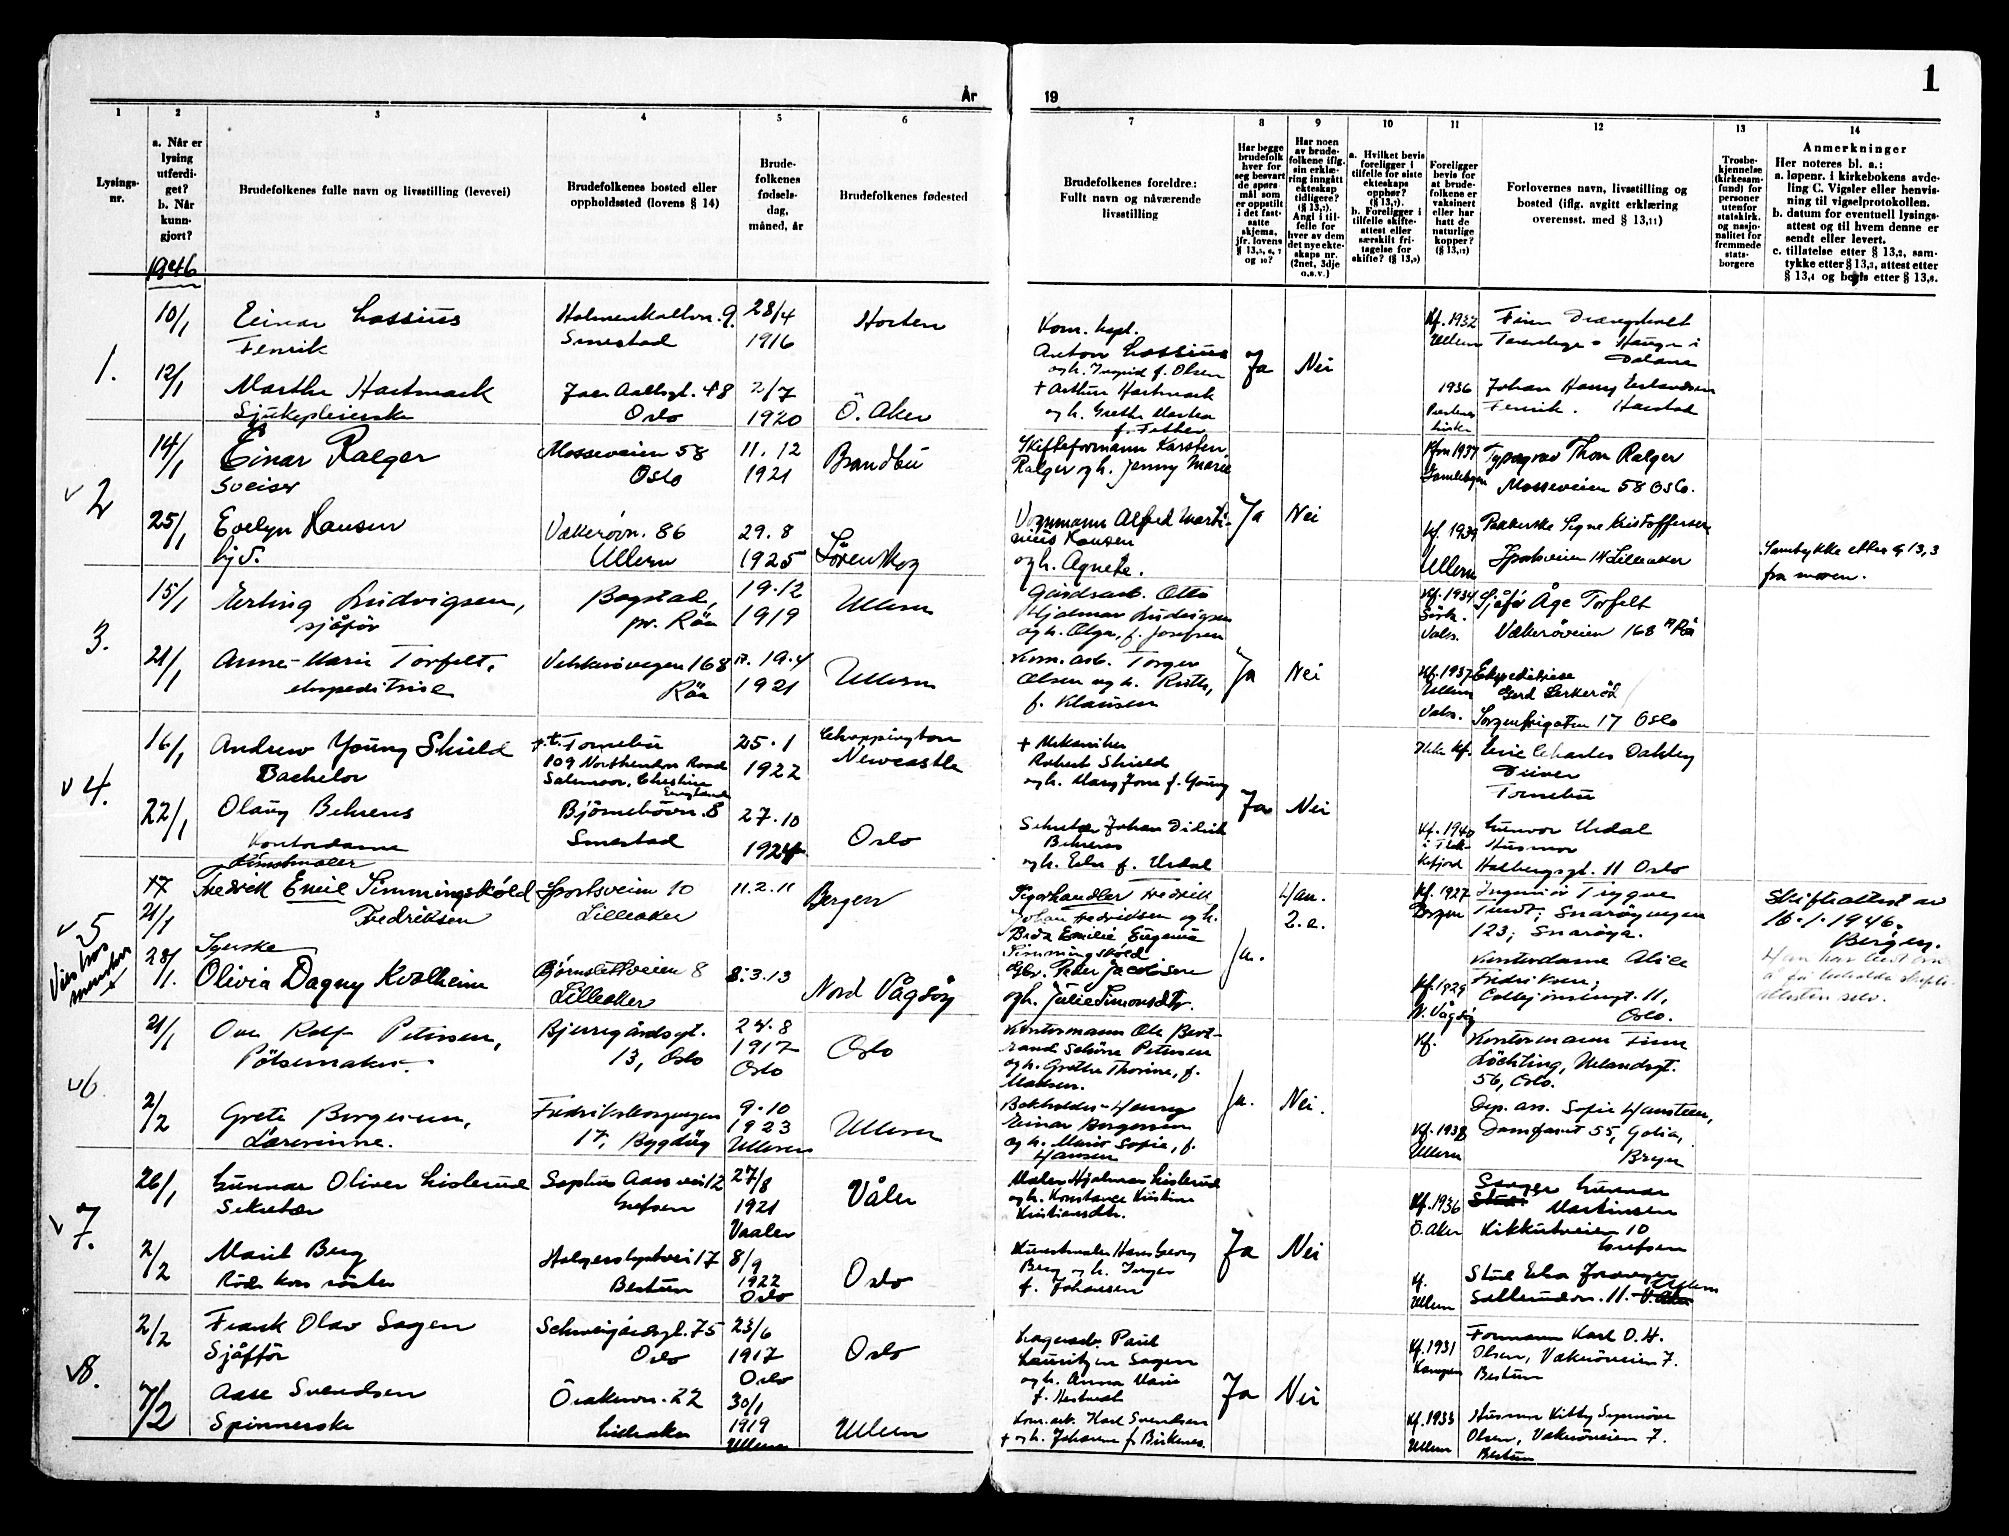 1
År
19
1
2
3
4
5
6
7
8
9
10
11
12
13
14
Lysings-
nr.
a. Når er
lysing
utferdi-
get?
b. Når
kunn-
gjort?
Brudefolkenes fulle navn og livsstilling (levevei)
Brudefolkenes bosted eller
oppholdssted (lovens § 14)
Brude-
folkenes
fødsels-
dag,
måned, år
Brudefolkenes fødested
Brudefolkenes foreldre:
Fullt navn og nåværende
livsstilling
Har begge
brudefolk
hver for
seg besvart
de spørs-
mål som
er oppstilt
i det fast-
satte
skjema,
jfr. lovens
og 10?
Har noen
av brude-
folkene iflg.
sin erklæ-
ring inngått
ekteskap
tidligere?
Angi i til-
felle for
hver av dem
det nye ekte-
skaps nr.
(2net, 3dje
o.s.v.)
a. Hvilket bevis
foreligger i
tilfelle for siste
ekteskaps
opphør?
b. Foreligger i
tilfelle skifte-
attest eller
særskilt fri-
tagelse for
skifte?
Foreligger
bevis for
at brude-
folkene er
vaksinert
eller har
hatt de
naturlige
kopper?
Forlovernes navn, livsstilling og
bosted (iflg. avgitt erklæring
overensst. med § 13,11)
Trosbe-
kjennelse
(kirkesam-
fund) for
personer
utenfor
statskirk.
og nasjo-
nalitet for
fremmede
stats-
borgere
Anmerkninger
Her noteres bl. a.:
a. løpenr. i kirkebokens avde-
ling C. Vigsler eller henvis-
ning til vigselprotokollen.
b. datum for eventuell lysings-
attest og til hvem denne er
sendt eller levert.
c. tillatelse etter § 13,2, sam-
tykke etter § 13,3, attest etter
§ 13,4 og bevis etter § 13,8.
1946
1.
10/1
Einar Lassius
Fenrik
Holmenkollvn. 9.
Smestad
28/4
1916
Horten
Kom. kapt.
Anton Lassius
og h. Ingrid f. Olsen
Ja
Nei
Kf. 1932
Ullern
12/1
Marthe Hartmark
Sjukepleierske
Oslo
2/7
1920
Ö. Aker
+ Arthur Hartmark
1936
Johan Harry Erlandsen
Fenrik. Harstad
2
14/1
Einar Ralger
Sveiser
Mosseveien 58
Oslo
11. 12
1921
Brandbu
Ralger og h. Jenny Marie
Ja
Nei
Thor Ralger
Mosseveien 58 Oslo.
25/1
Evelyn Hansen
hjv.
Vækerövn. 86
Ullern
29. 8
1925
Lörenskog
Alfred Marti-
nius Hansen
og h. Agnete.
Kf. 1939
Ullern
Signe Kristoffersen
Lilleaker
Samtykke etter § 13,3
fra moren.
3.
15/1
Erling Ludvigsen,
sjåför
Bogstad,
pr. Röa
19.12
1919
Ullern
Gårdsarb. Otto
Hjalmar Ludvigsen
og h. Olga, f. Josefsen
Kf. 1934
Sjåför Åge Torfelt
Vækeröveien 168 Röa
21/1
Anne-Marie Torfelt,
ekspeditrise
168
Röa
19.4
1921
Ullern
Kom. arb. Torger
Olsen og h. Ruth,
f. Klausen
Ja
Nei
Kf. 1937
Ullern
Ekspeditrise
Gerd Lerkeröd
Sorgenfrigaten 17 Oslo
4.
16/1
Andrew Young Shield
Bachelor
p.t. Fornebu
109 Northenden Road
Cheshire
England
25.1
1922
Choppington
Newcastle
+ Mekaniker
Robert Shield
og h. Mary Jane f. Young
Eric Charles Oakley
Driver
Fornebu
22/1
Olaug Behrens
Kontordame
Smestad
27.10
1924
Oslo
Sekretær Johan Didrik
Behrens
og h. Elsa f. Urdal
Ja
Nei
Kf. 1940
Gunvor Urdal
Husmor
Holbergsgt. 11 Oslo
5
17
21/1
Kunstmaler
Fredrik Emil Simmingsköld
Fredriksen
Sportsveien 10
Lilleaker
11.2.11
Bergen
Sigarhandler Fredrik
Johan Fredriksen og h.
Emilie Eugenia
Simmingsköld
Han.
2.e.
Kf. 1927
Bergen
Ingeniör Trygve
Tundt, Snaröyvegen
123, Snaröya.
Skifteattest av
16.1.1946.
Bergen.
28/1.
Syerske
Olivia Dagny Kvalheim
Björnslettveien 8
Lilleaker
8.3.13
Nord Vågsöy
Gbr. Peder Jacobsen
og h. Julie Simonsdtr.
Ja.
Kf. 1929
N. Vågsöy
Kontordame Alice
Fredriksen,
Colbjörnsensgt. 11,
Oslo.
6
21/1
Ove Rolf Petersen,
Pölsemaker.
Bjerregårdsgt.
13, Oslo
24.8
1917
Oslo
Oslo
Kontormann Ole Bert-
rand Schöne Petersen
og h. Grethe Thorine, f.
Madsen.
Kf.
Kontormann Finn
Löchting, Uelandsgt.
56, Oslo.
2/2
Grete Borgersen,
Lærerinne.
17, Bygdöy
9.10
1923
Ullern
Ullern
Bokholder Henry
Einar Borgersen
og h. Marie Sofie, f.
Hansen
Ja.
Nei.
Kf. 1938
Ullern
Exp. ass. Sofie Hansteen,
Damfaret 55,
Bryn
7.
26/1
Gunnar Oliver Lislerud
Sekretær
Sophus Aars vei 12
Grefsen
27/8
1921
Vaaler
Våler
Maler Hjalmar Lislerud
og h. Konstance Kristine
Kristiansdtr.
Kf. 1936
Ö. Aker
Gunnar
Martinsen
Kikkutveien 10
Grefsen
2/2
Marit Berg
Röde kors söster
Holgerslystvei 17
Bestun
8/9
1922
Oslo
Oslo
Kunstmaler Hans Georg
Berg og h. Inger
f. Johansen
Ja
Nei
Kf.
Ullern
Stud Elsa
Sollerudvn. 11.
Ullern
8.
2/2
Frank Olav Sagen
Sjåför
Schweigårdsgt. 75
Oslo
23/6
1917
Oslo
Oslo
Lagerarb. Paul
Lauritzen Sagen
og h. Anna Marie
Kf. 1931
Kampen
Formann Karl O. H.
Olsen, Vækeröveien 7.
Bestun
7/2
Aase Svendsen
Spinnerske
Örakervn. 22
Lilleaker
30/1
1919
Ullern
Ullern
Kom. arb. Karl Svendsen
+ og h. Johanne f. Birkenes.
Ja
Nei
Kf. 1933
Ullern
Husmor Kitty
Olsen, Vækeröveien 7.
Bestun